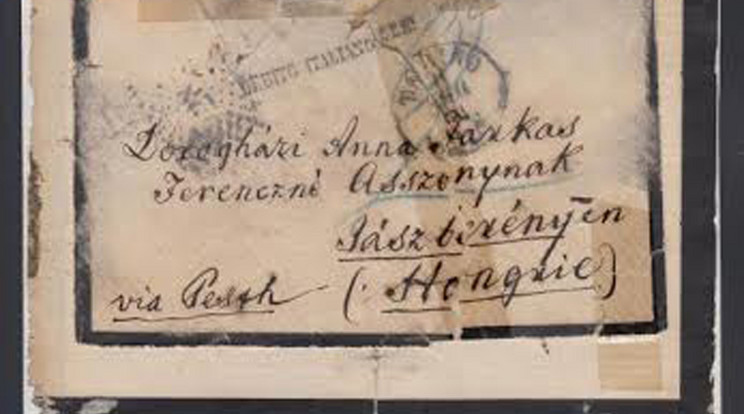 DEBITO ITALIANO
Dorogházi Anna Farkas
Ferenczné Asszonynak
Jászberényen
via Pesth (Hongrie)